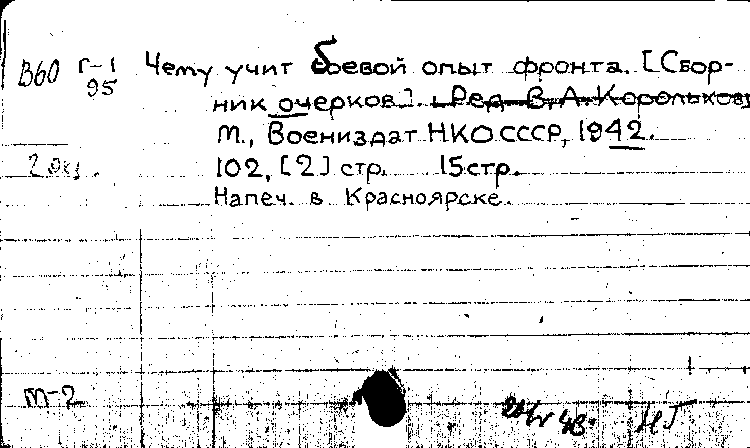 В60 Г-1 Чему учит боевой опыт фронта. [Сбор-
95 ник очерков]. Ред. В. А. Корольков
М., Воениздат НКО СССР, 1942.
2 экз. 102, [2] стр. 15стр.
Напеч. в Красноярске.
m-2